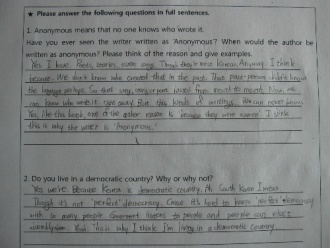 ★ Please answer the following questions in full sentences.
1. Anonymous means that no one knows who wrote it.
Have you ever seen the writer written as Anonymous? When would the author be
written as anonymous? Please think of the reason and give examples.
Yes I have. Poets, stories, even songs. Though they're more Korean. Anyway, I think
because. We don't know who created that in the past. Those poor persons didn't know
the language perhaps. So that song, story or poem passed from mouth to mouth. Now, we
can know who wrote it right away. But this kinds of writings, we can never know.
Yes, like this book, one of the author reason is because they were women. I think
this is why the writer is 'Anonymous.'
2. Do you live in a democratic country? Why or why not?
Yes we're because Korea is democratic country. Ah South Korea I mean.
Though it's not 'perfect' democracy. Cause it's hard to make 'perfect' democracy
with so many people. Goverment listens to people and people can elect
Yeah this is why I think I'm living in a democratic country.